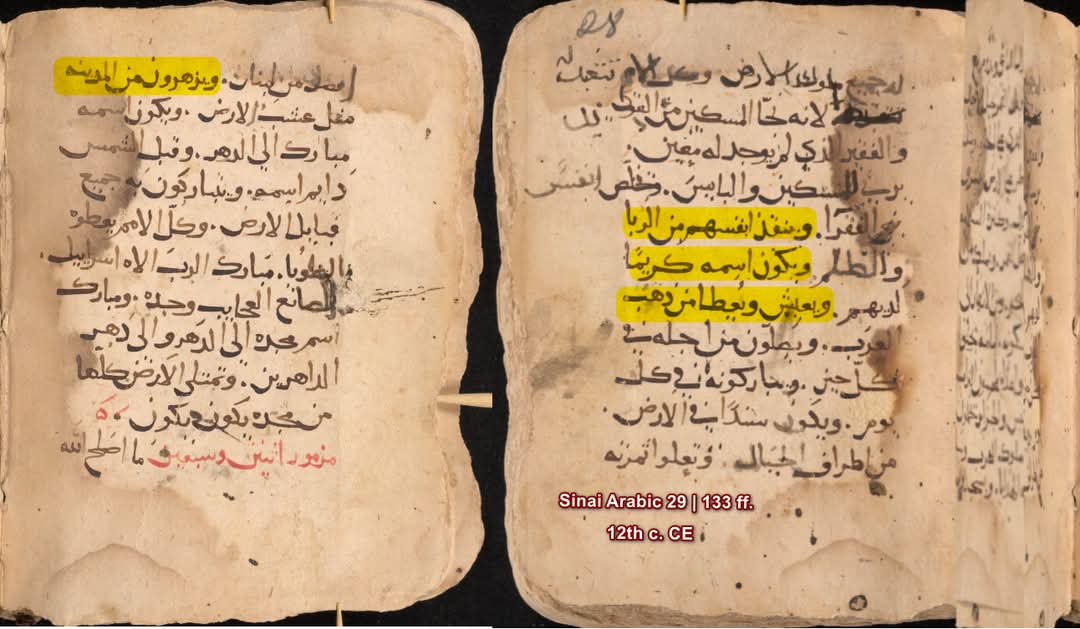 28
جميع ملوك الارض وكل الامم تتعبد له
لانه نجا المسكين من
والفقير الذي لم يوجد له معين.
للمسكين والبايس. يخلص انفس
الفقرا. وينقذ انفسهم من الربا
والظلم ويكون اسمه كريمًا
لديهم. ويعيش ويُعطا من دهب
العرب. ويصلون من اجله في
كل حين. ويباركونه في كل
يوم. ويكون سندًا في الارض.
من اطراف الجبال. وتعلوا ثمرته
افضل من لبنان. ويزهرون من المدينه
مثل عشب الارض. ويكون اسمه
مبارك الى الدهر. وقبل الشمس
دايم اسمه. ويتباركون به جميع
قبايل الارض. وكل الامم يعطوه
الطوبا. مبارك الرب الاه اسراييل.
الصانع العجايب وحده. ومبارك
اسم مجده الى الدهر والى دهر
الداهرين. وتمتلى الارض كلها
من مجده يكون يكون
مزمور اتنين وسبعين ما اصلح الله
Sinai Arabic 29 | 133 ff.
12th c. CE